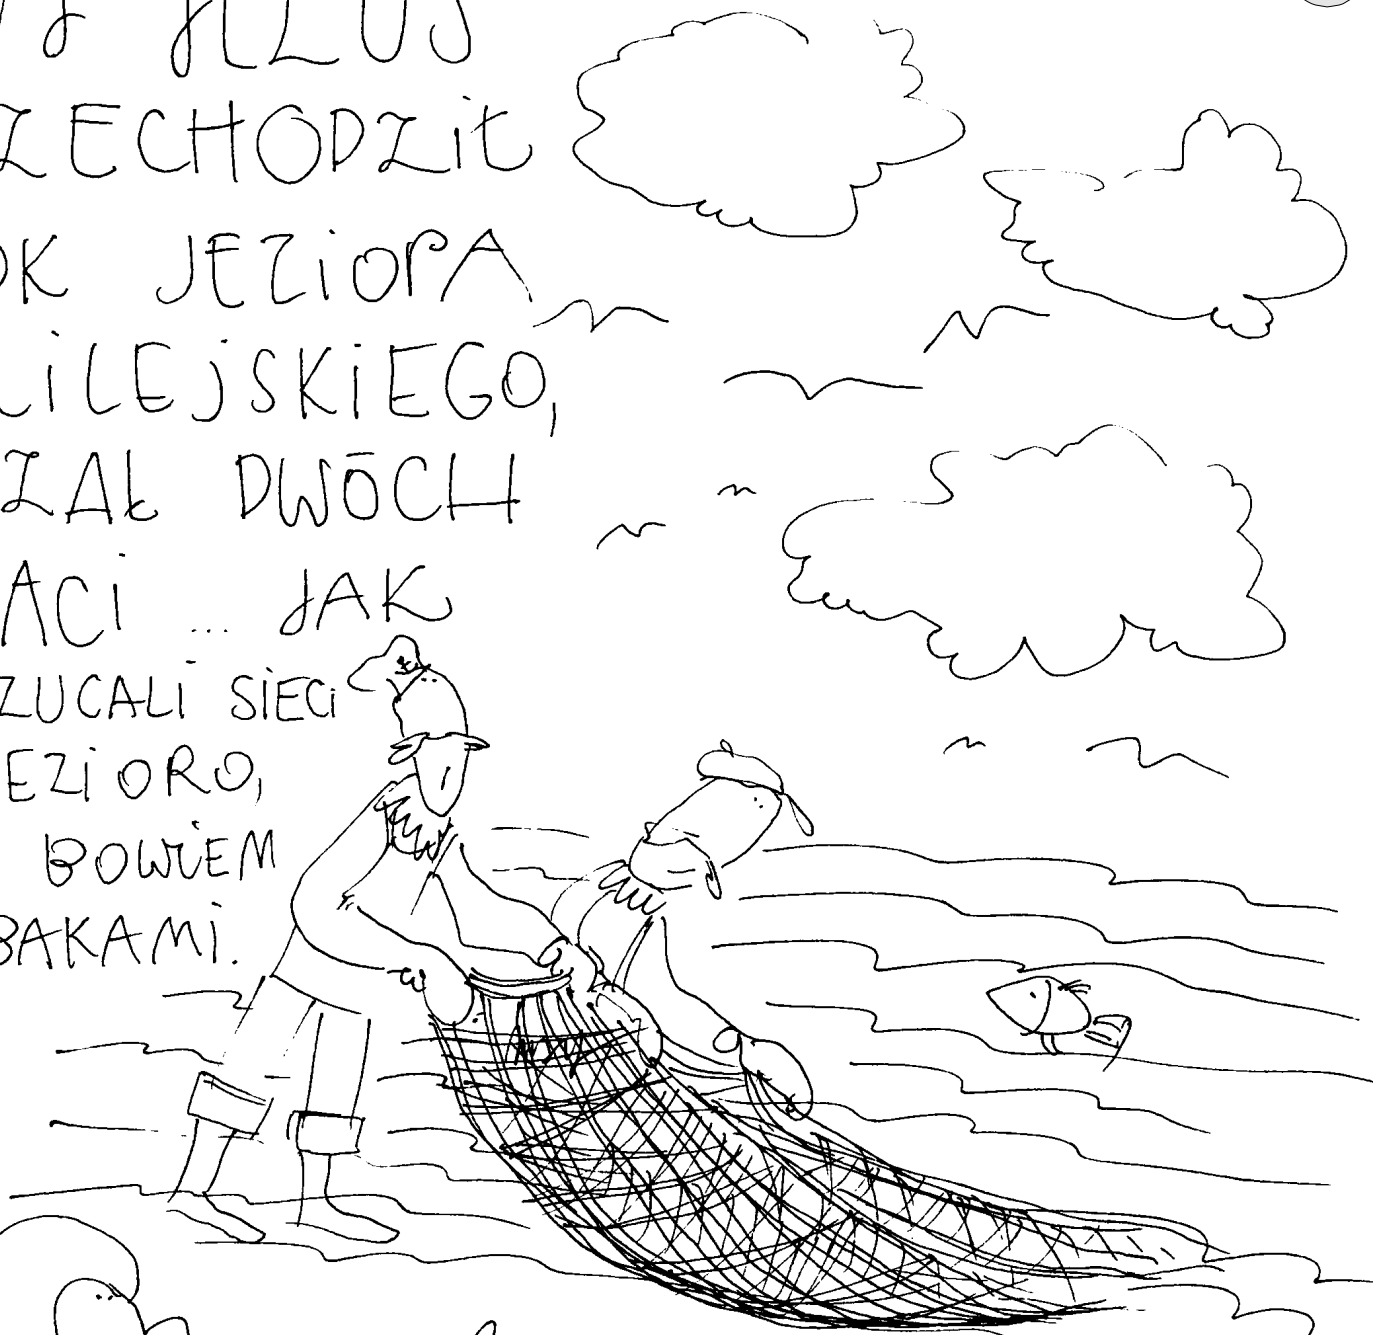 JEZUS
ZECHODZIŁ
OK JEZIORA
LILEJSKIEGO,
ZAŁ DWÓCH
ACI ... JAK
ZUCALI SIECI
EZIORO,
BOWIEM
BAKAMI.